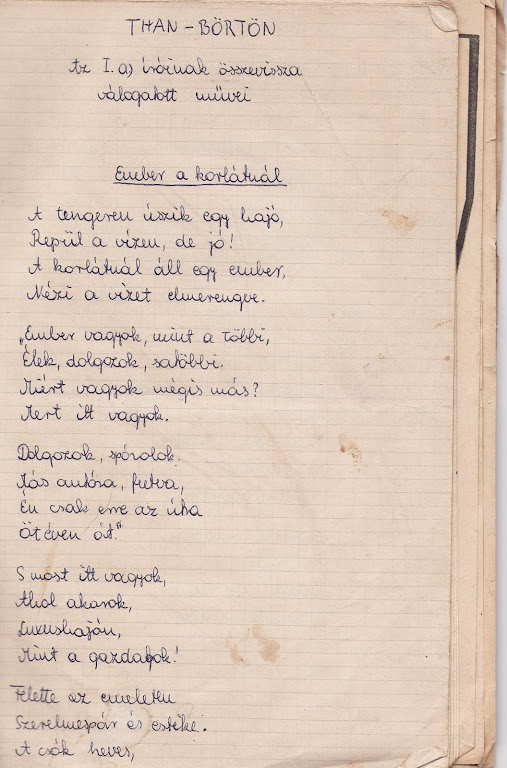 THAN-BÖRTÖN
Az I. a) íróinak összevissza
válogatott művei
Ember a korlátnál
A tengeren úszik egy hajó,
Repül a vízen, de jó!
A korlátnál áll egy ember,
Nézi a vizet elmerengve.
„Ember vagyok, mint a többi,
Élek, dolgozok, satöbbi.
Miért vagyok mégis más?
Mert itt vagyok.
Dolgozok, spórolok.
Más autóra, futva,
Én csak erre az útra
Öt éven át."
S most itt vagyok,
Ahol akarok,
Luxushajón,
Mint a gazdagok!
Felette az emeleten
Szerelmespár és estéke.
A csók heves,